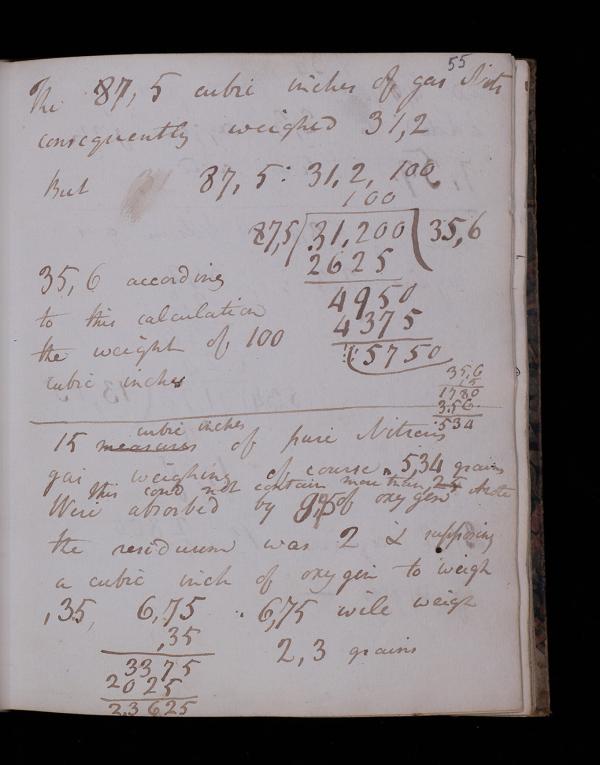 55
The 87,5 cubic inches of gas
consequently weighed 31,2
But 87,5 : 31,2, 100
100
87,5 / 31,200 ( 35,6
2625
4950
4375
5750
35,6 according
to this calculation
the weight of 100
cubic inches
35,6
15
1780
356
534
cubic inches
15 measures of pure Nitrous
gas weighing of course 5,34 grains
this could not contain more than
Were absorbed by of oxygen
the residuum was 2 & supposing
a cubic inch of oxygen to weigh
,35, 6,75 6,75 will weigh
,35
2,3 grains
3375
2025
2,3625